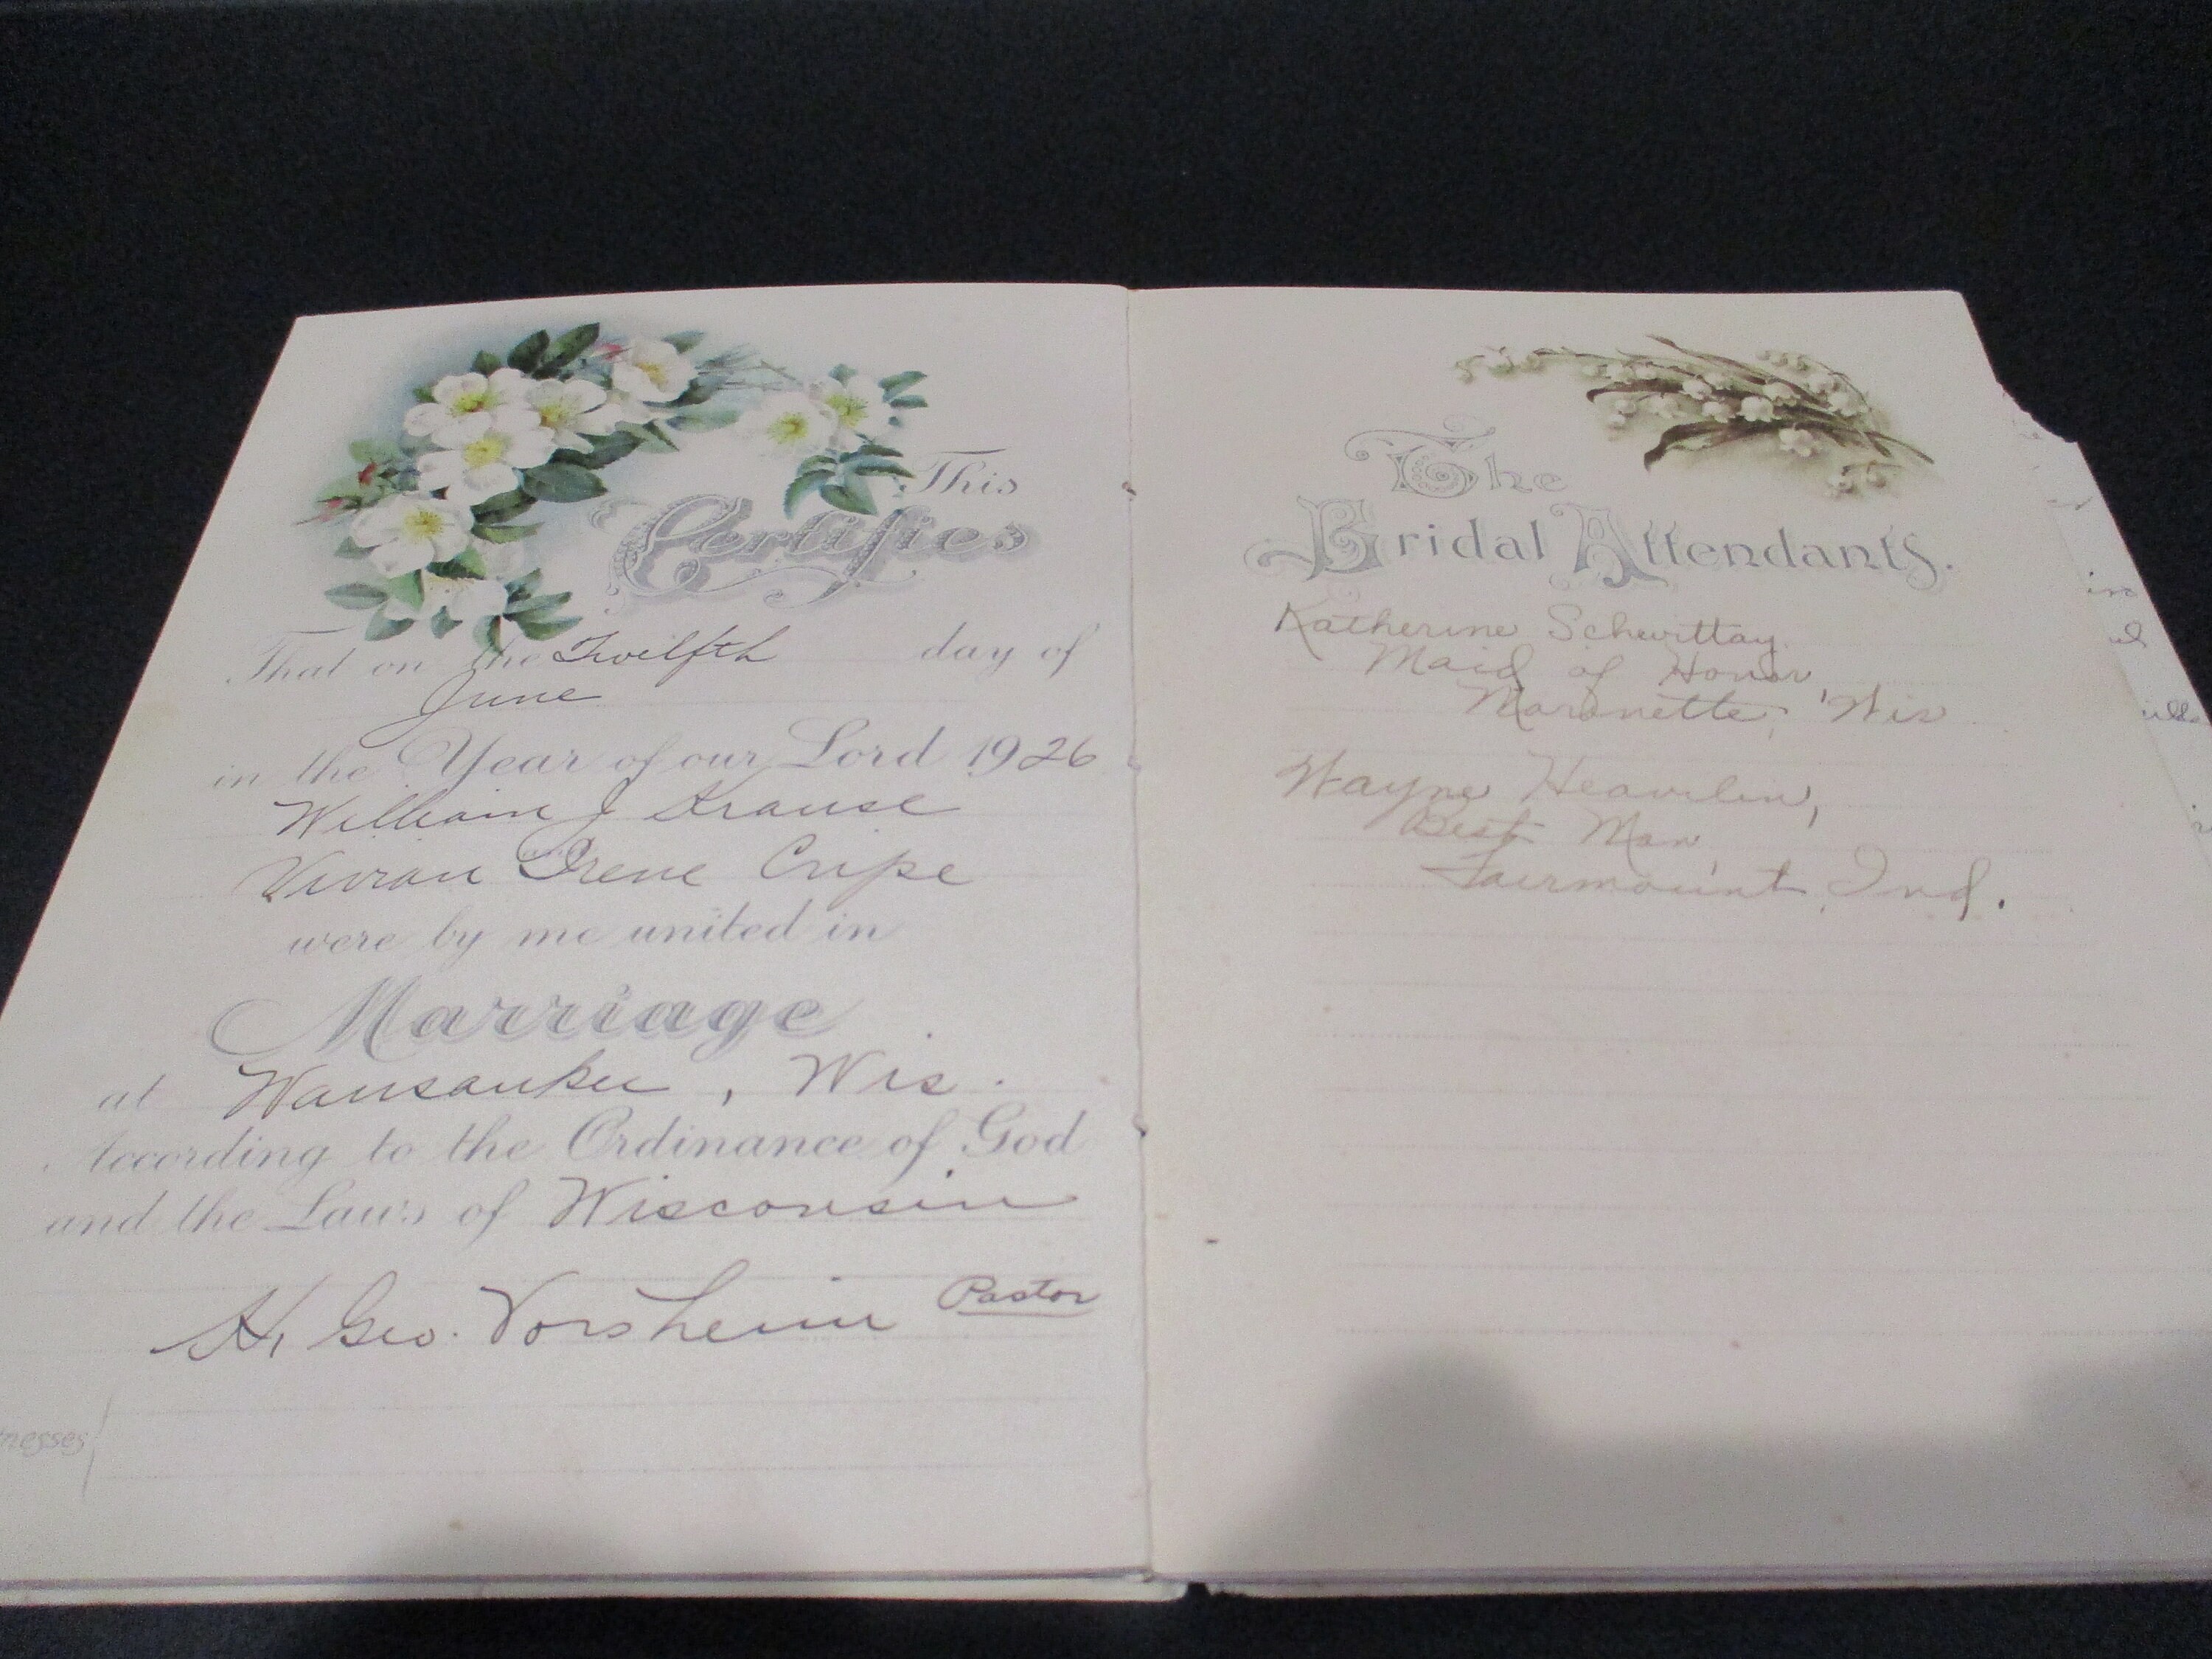 This
Certifies
That on the Twelfth day of
June
in the Year of our Lord 1926
William J Krause
and
Vivian Irene Cripe
were by me united in
Marriage
at Wausaukee, Wis.
According to the Ordinance of God
and the Laws of Wisconsin
H. Geo. Vorsheim Pastor
nesses
The
Bridal Attendants.
Katherine Schwittay
Maid of Honor
Marinette, Wis
Wayne Heavilin,
Best Man,
Fairmount, Ind.